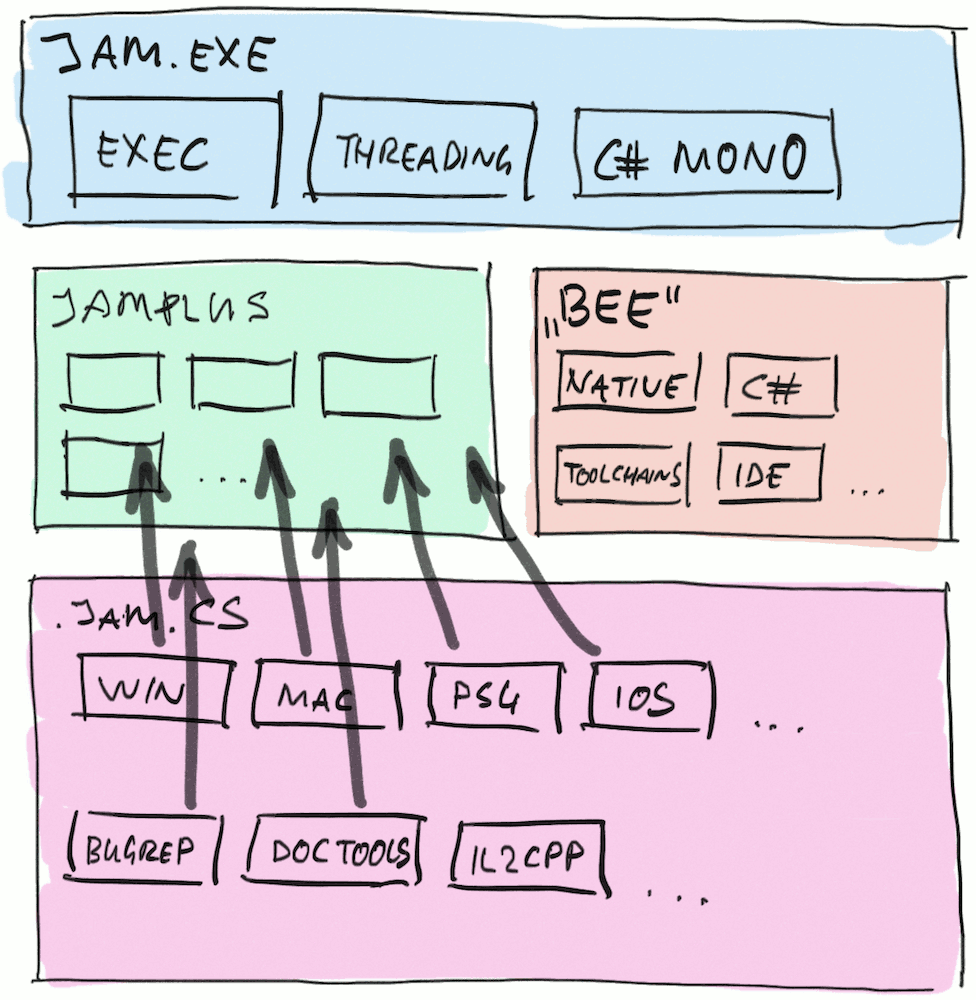 JAM.EXE
EXEC THREADING C# MONO
JAMPLUS
...
„BEE"
NATIVE C#
TOOLCHAINS IDE ...
.JAM.CS
WIN MAC PS4 IOS ...
BUGREP DOCTOOLS IL2CPP ...